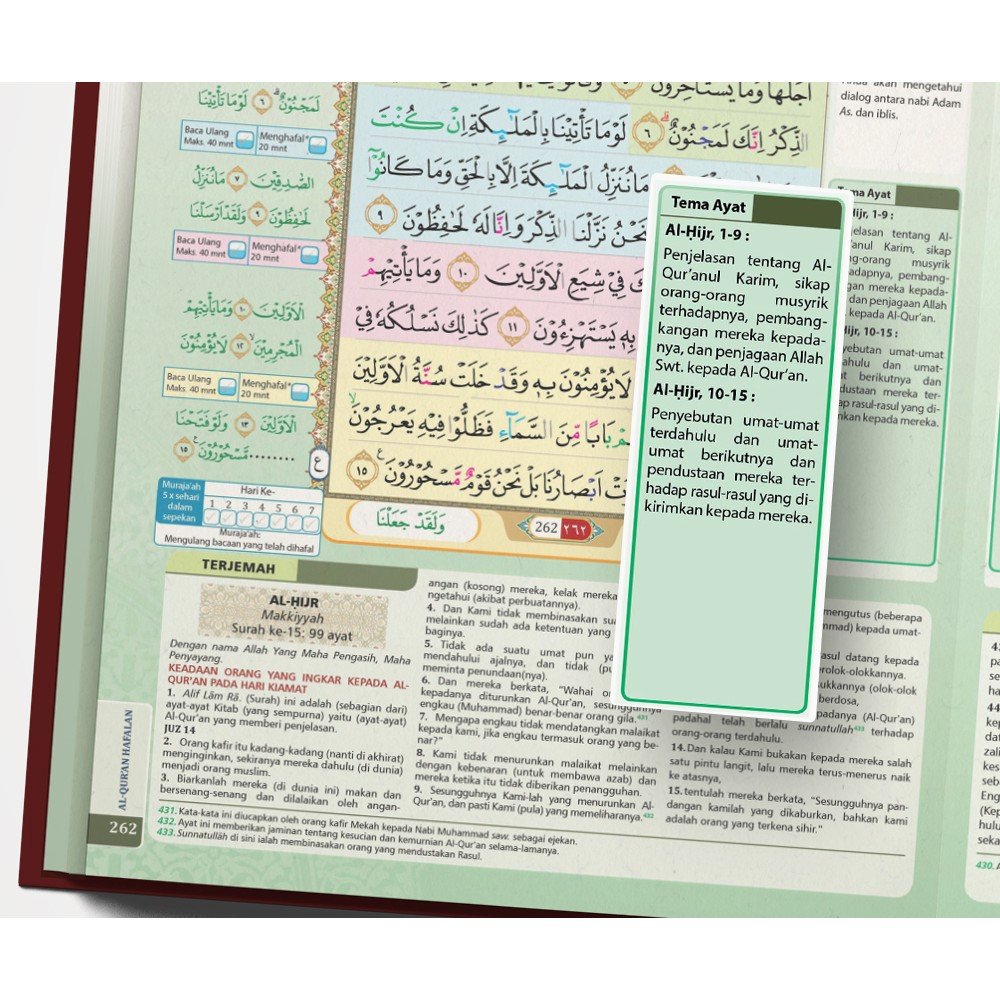 لَمَجْنُوْنٌ ۗ ٦ لَوْمَا تَأْتِيْنَا
Baca Ulang
Maks. 40 mnt
Menghafal*
20 mnt
الصّٰدِقِيْنَ ٧ مَا نُنَزِّلُ
لَحٰفِظُوْنَ ٩ وَلَقَدْ اَرْسَلْنَا
Baca Ulang
Maks. 40 mnt
Menghafal*
20 mnt
الْاَوَّلِيْنَ ١٠ وَمَا يَأْتِيْهِمْ
الْمُجْرِمِيْنَ ١٢ لَا يُؤْمِنُوْنَ
Baca Ulang
Maks. 40 mnt
Menghafal*
20 mnt
الْاَوَّلِيْنَ ١٣ وَلَوْ فَتَحْنَا
........مَّسْحُوْرُوْنَ ࣖ ١٥
Muraja'ah
5 x sehari
dalam
sepekan
Hari Ke-
1 2 3 4 5 6 7
Muraja'ah:
Mengulang bacaan yang telah dihafal
اَجَلَهَا وَمَا يَسْتَأْخِرُوْنَ
الذِّكْرُ اِنَّكَ لَمَجْنُوْنٌ ۗ ٦ لَوْمَا تَأْتِيْنَا بِالْمَلٰۤىِٕكَةِ اِنْ كُنْتَ
مَا نُنَزِّلُ الْمَلٰۤىِٕكَةَ اِلَّا بِالْحَقِّ وَمَا كَانُوْٓا
نَحْنُ نَزَّلْنَا الذِّكْرَ وَاِنَّا لَهٗ لَحٰفِظُوْنَ ٩
فِيْ شِيَعِ الْاَوَّلِيْنَ ١٠ وَمَا يَأْتِيْهِمْ
بِهٖ يَسْتَهْزِءُوْنَ ١١ كَذٰلِكَ نَسْلُكُهٗ فِيْ
لَا يُؤْمِنُوْنَ بِهٖ وَقَدْ خَلَتْ سُنَّةُ الْاَوَّلِيْنَ
بَابًا مِّنَ السَّمَاۤءِ فَظَلُّوْا فِيْهِ يَعْرُجُوْنَ
اَبْصَارُنَا بَلْ نَحْنُ قَوْمٌ مَّسْحُوْرُوْنَ ࣖ ١٥
ع
وَلَقَدْ جَعَلْنَا
262 ٢٦٢
Anda akan mengetahui
dialog antara nabi Adam
As. dan iblis.
Tema Ayat
Al-Ḥijr, 1-9 :
Penjelasan tentang Al-
Qur'anul Karim, sikap
orang-orang musyrik
terhadapnya, pembang-
kangan mereka kepada-
nya, dan penjagaan Allah
Swt. kepada Al-Qur'an.
Al-Ḥijr, 10-15 :
Penyebutan umat-umat
terdahulu dan umat-
umat berikutnya dan
pendustaan mereka ter-
hadap rasul-rasul yang di-
kirimkan kepada mereka.
Tema Ayat
Ḥijr, 1-9 :
tentang Al-
Karim, sikap
musyrik
pembang-
mereka kepada-
dan penjagaan Allah
kepada Al-Qur'an.
Ḥijr, 10-15 :
umat-umat
dan umat-
berikutnya dan
mereka ter-
rasul-rasul yang di-
kepada mereka.
TERJEMAH
AL-ḤIJR
Makkiyyah
Surah ke-15: 99 ayat
Dengan nama Allah Yang Maha Pengasih, Maha
Penyayang.
KEADAAN ORANG YANG INGKAR KEPADA AL-
QUR'AN PADA HARI KIAMAT
1. Alif Lām Rā. (Surah) ini adalah (sebagian dari)
ayat-ayat Kitab (yang sempurna) yaitu (ayat-ayat)
Al-Qur'an yang memberi penjelasan.
JUZ 14
2. Orang kafir itu kadang-kadang (nanti di akhirat)
menginginkan, sekiranya mereka dahulu (di dunia)
menjadi orang muslim.
3. Biarkanlah mereka (di dunia ini) makan dan
bersenang-senang dan dilalaikan oleh angan-
angan (kosong) mereka, kelak mereka
ngetahui (akibat perbuatannya).
4. Dan Kami tidak membinasakan
melainkan sudah ada ketentuan yang
baginya.
5. Tidak ada suatu umat pun
mendahului ajalnya, dan tidak
meminta penundaan(nya).
6. Dan mereka berkata, "Wahai
kepadanya diturunkan Al-Qur'an, sesungguhnya
engkau (Muhammad) benar-benar orang gila.431
7. Mengapa engkau tidak mendatangkan malaikat
kepada kami, jika engkau termasuk orang yang be-
nar?"
8. Kami tidak menurunkan malaikat melainkan
dengan kebenaran (untuk membawa azab) dan
mereka ketika itu tidak diberikan penangguhan.
9. Sesungguhnya Kami-lah yang menurunkan Al-
Qur'an, dan pasti Kami (pula) yang memeliharanya.432
mengutus (beberapa
kepada umat-
rasul datang kepada
(olok-olok
berdosa,
kepadanya (Al-Qur'an)
padahal telah berlalu sunnatullah433 terhadap
orang-orang terdahulu.
14. Dan kalau Kami bukakan kepada mereka salah
satu pintu langit, lalu mereka terus-menerus naik
ke atasnya,
15. tentulah mereka berkata, "Sesungguhnya pan-
dangan kamilah yang dikaburkan, bahkan kami
adalah orang yang terkena sihir."
431. Kata-kata ini diucapkan oleh orang kafir Mekah kepada Nabi Muhammad saw. sebagai ejekan.
432. Ayat ini memberikan jaminan tentang kesucian dan kemurnian Al-Qur'an selama-lamanya.
433. Sunnatullāh di sini ialah membinasakan orang yang mendustakan Rasul.
AL-QUR'AN HAFALAN
262
430.